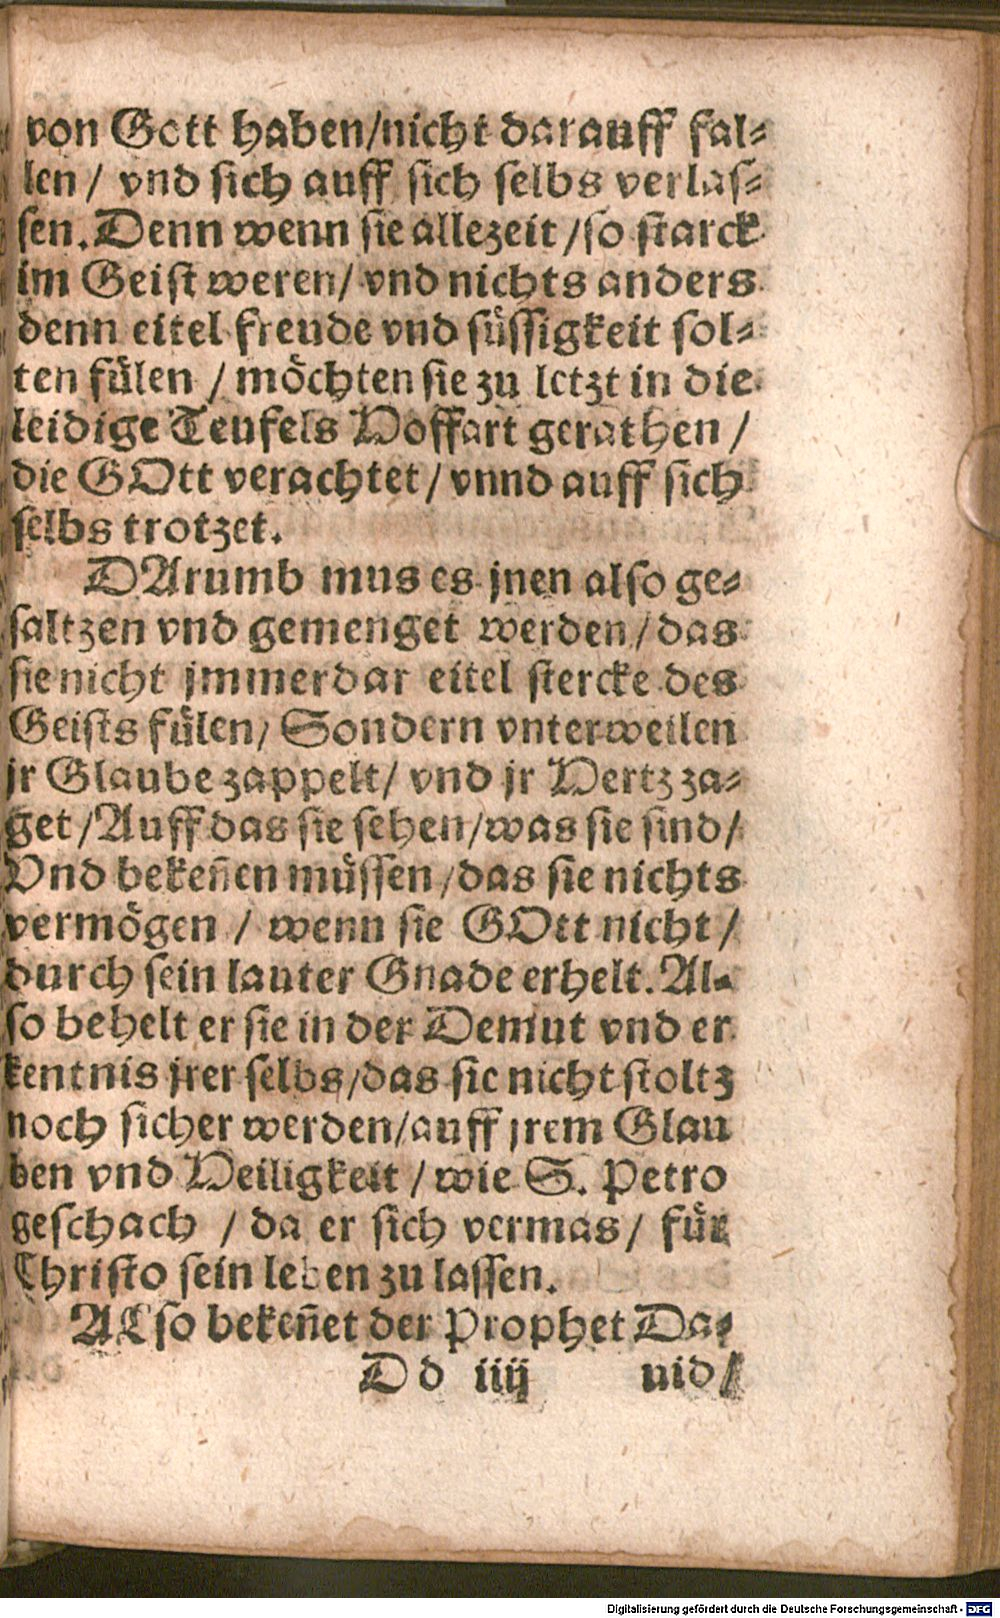 von Gott haben/nicht darauff fal-
len / vnd sich auff sich selbs verlas-
sen. Denn wenn sie allezeit /so starck
im Geist weren/ vnd nichts anders
denn eitel freude vnd süssigkeit sol-
ten fülen / möchten sie zu letzt in die
leidige Teufels Hoffart gerathen /
die GOtt verachtet/ vnnd auff sich
selbs trotzet.
DArumb mus es jnen also ge-
saltzen vnd gemenget werden/das
sie nicht jmmerdar eitel stercke des
Geists fülen/ Sondern vnterweilen
jr Glaube zappelt/ vnd jr Hertz za-
get/Auff das sie sehen/was sie sind/
Vnd bekeñen müssen/das sie nichts
vermögen / wenn sie GOtt nicht/
durch sein lauter Gnade erhelt. Al-
so behelt er sie in der Demut vnd er
kentnis jrer selbs/das sie nicht stoltz
noch sicher werden/auff jrem Glau
ben vnd Heiligkeit / wie S. Petro
geschach / da er sich vermas/ für
Christo sein leben zu lassen.
ALso bekeñet der Prophet Da-
D d iiij uid/
Digitalisierung gefördert durch die Deutsche Forschungsgemeinschaft - DFG